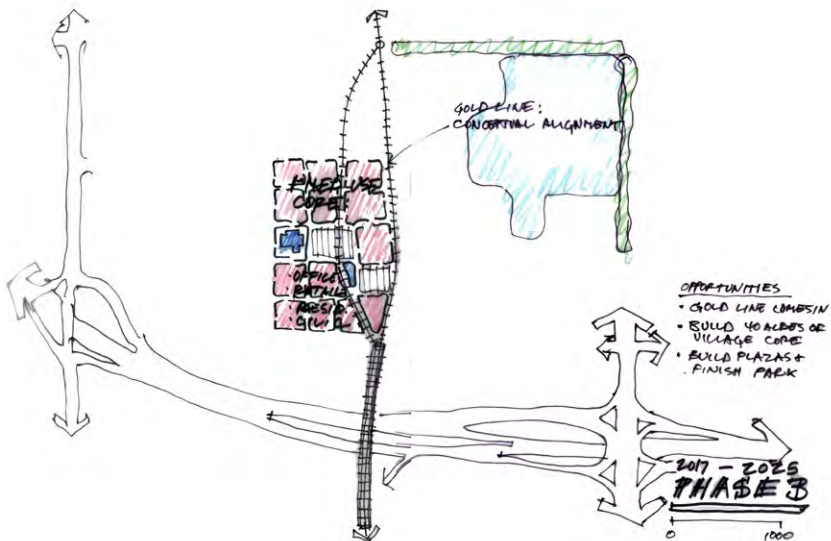 GOLD LINE:
CONCEPTUAL ALIGNMENT
MIXED USE
CORE:
• OFFICE
• RETAIL
• RESID.
• CIVIC
OPPORTUNITIES
• GOLD LINE COMES IN
• BUILD 40 ACRES OF
VILLAGE CORE
• BUILD PLAZAS &
FINISH PARK
2017 - 2025
PHASE 3
0 1000